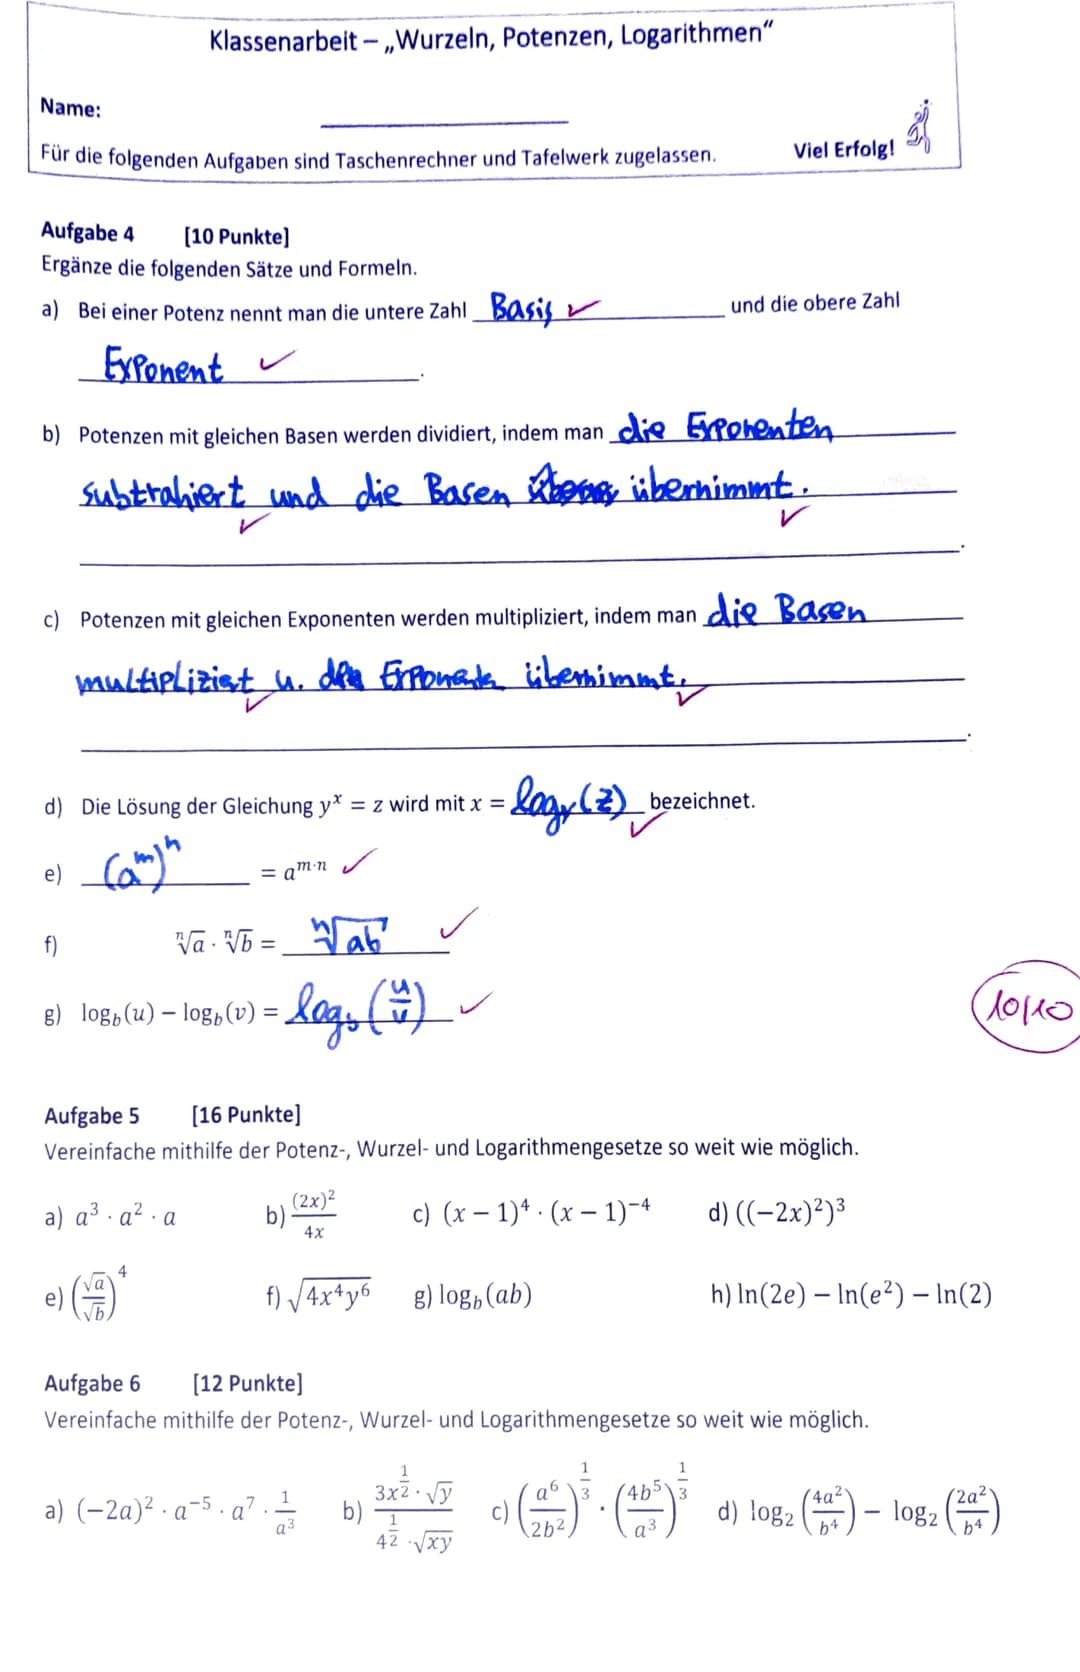 Klassenarbeit – „Wurzeln, Potenzen, Logarithmen“
Name:
Für die folgenden Aufgaben sind Taschenrechner und Tafelwerk zugelassen. Viel Erfolg!
Aufgabe 4 [10 Punkte]
Ergänze die folgenden Sätze und Formeln.
a) Bei einer Potenz nennt man die untere Zahl Basis ✓ und die obere Zahl
Exponent ✓ .
b) Potenzen mit gleichen Basen werden dividiert, indem man die Exponenten
subtrahiert und die Basen übernimmt.
✓ ✓
.
c) Potenzen mit gleichen Exponenten werden multipliziert, indem man die Basen
multipliziert u. Exponenten übernimmt.
✓ ✓
.
d) Die Lösung der Gleichung yˣ = z wird mit x = log_y(z) bezeichnet. ✓
e) (a^m)^n = a^{m·n} ✓
f) ⁿ√a · ⁿ√b = ⁿ√ab ✓
g) log_b(u) – log_b(v) = log_b(u/v) ✓
10/10
Aufgabe 5 [16 Punkte]
Vereinfache mithilfe der Potenz-, Wurzel- und Logarithmengesetze so weit wie möglich.
a) a³ · a² · a b) (2x)²/4x c) (x – 1)⁴ · (x – 1)⁻⁴ d) ((–2x)²)³
e) (√a/√b)⁴ f) √(4x⁴y⁶) g) log_b(ab) h) ln(2e) – ln(e²) – ln(2)
Aufgabe 6 [12 Punkte]
Vereinfache mithilfe der Potenz-, Wurzel- und Logarithmengesetze so weit wie möglich.
a) (–2a)² · a⁻⁵ · a⁷ · 1/a³ b) (3x^{1/2} · √y)/(4^{1/2} · √xy) c) (a⁶/2b²)^{1/3} · (4b⁵/a³)^{1/3} d) log₂(4a²/b⁴) – log₂(2a²/b⁴)